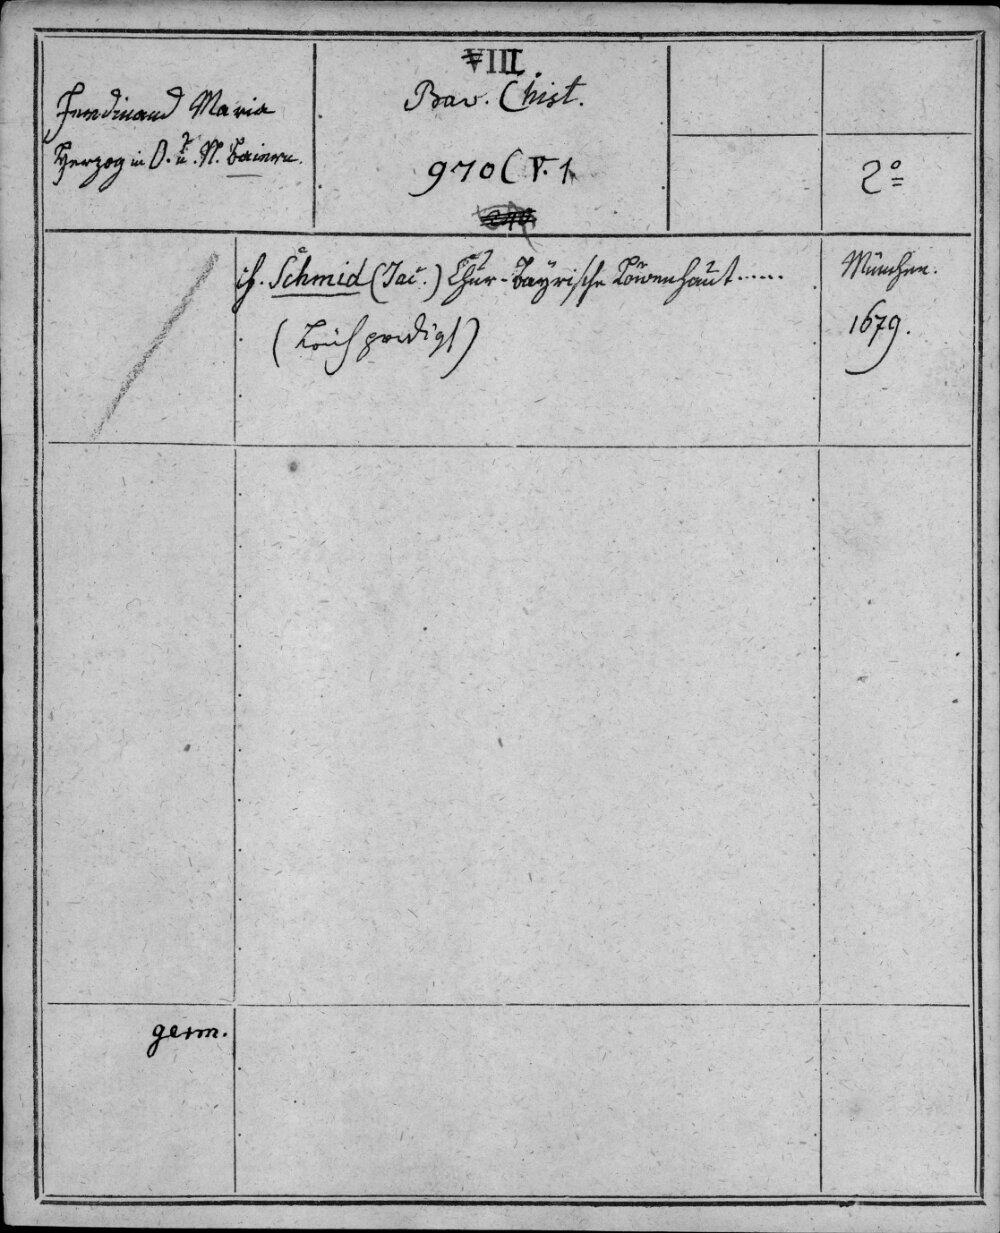 VIII.
Ferdinand Maria
Herzog in O. u. N. Baiern.
Bav.
970 ( V. 1
2°
Schmid (Jac.) Chur-Bayrische Löwenhaut......
(Leichpredigt)
München.
1679.
germ.